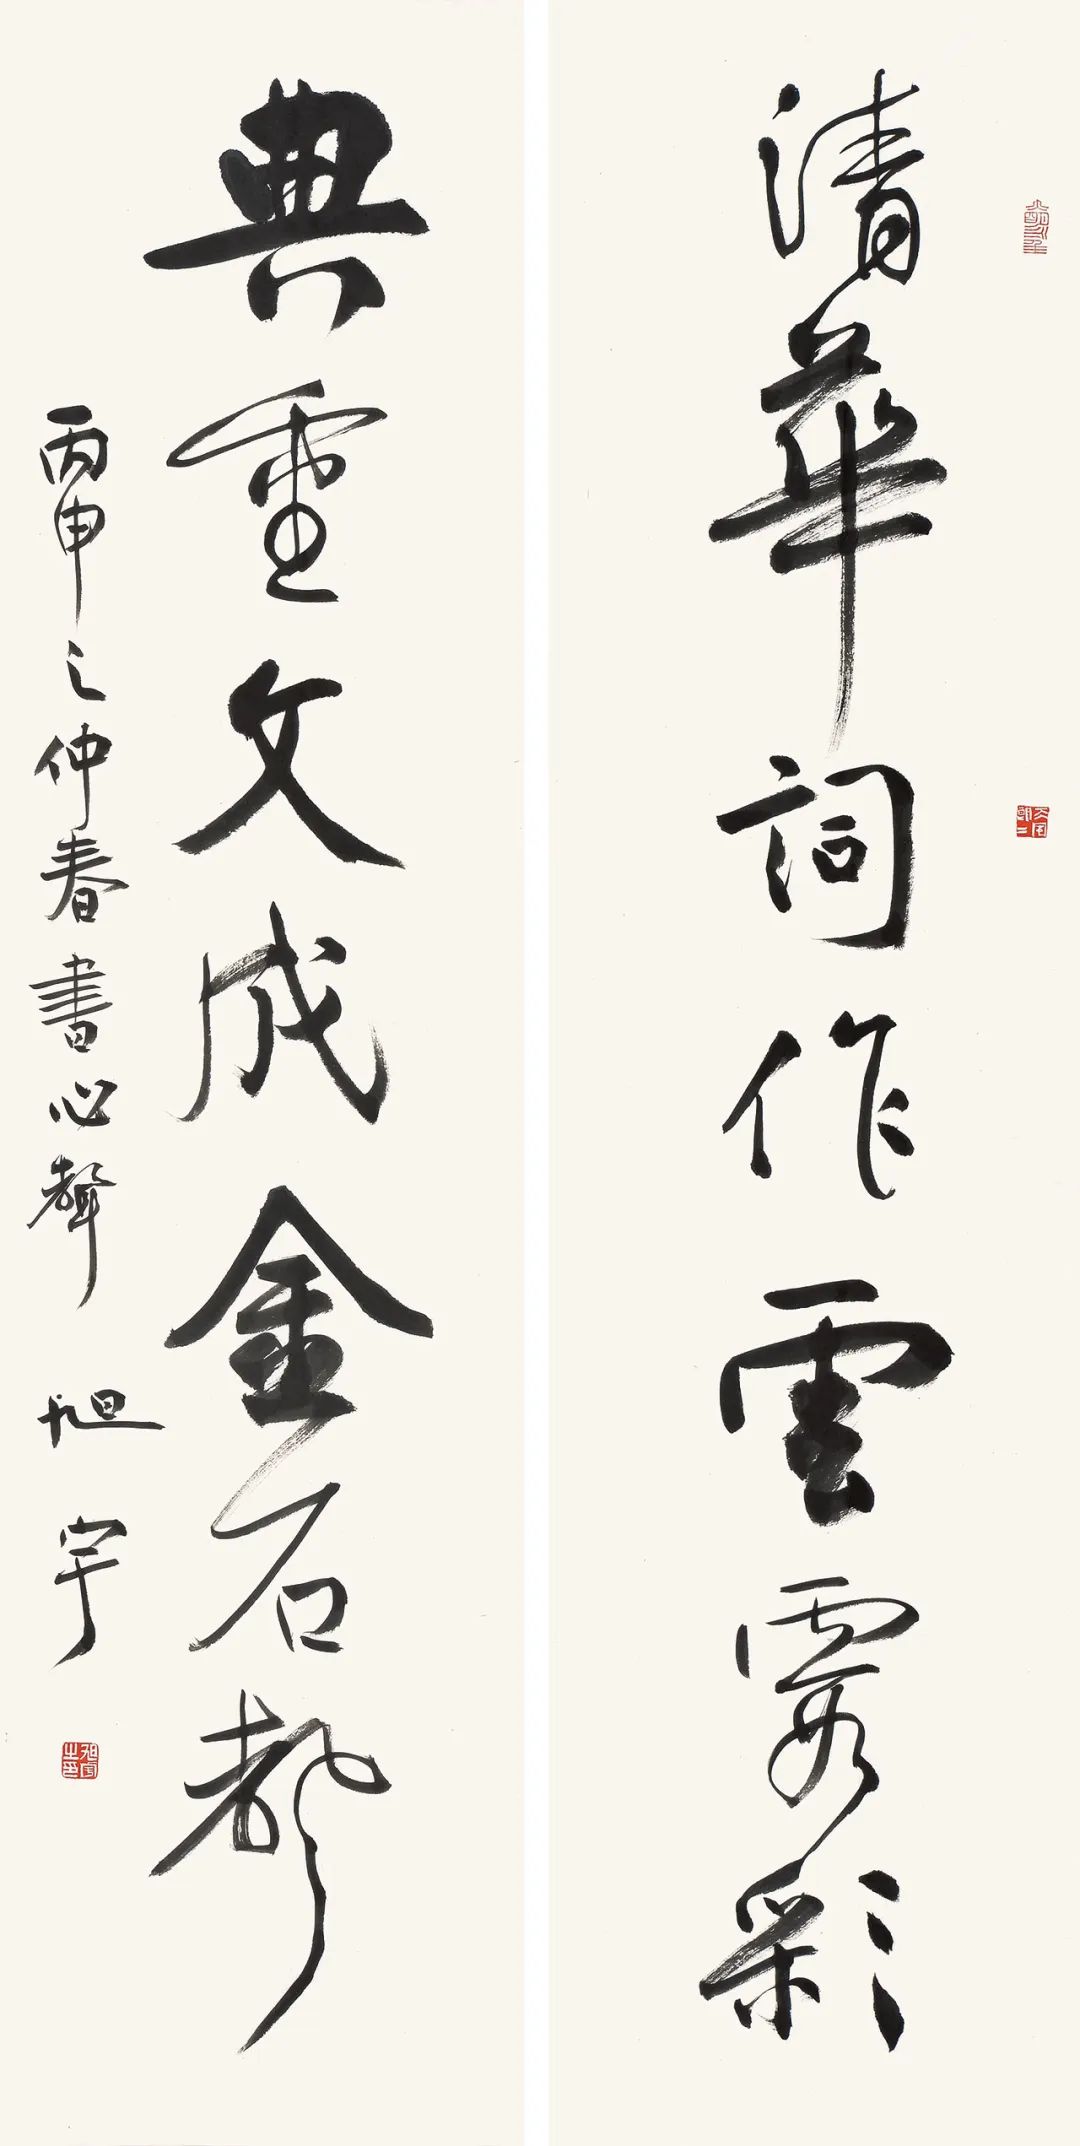 清華詞作雲霞彩
典重文成金石聲
丙申之仲春書心聲 旭宇
旭宇之印